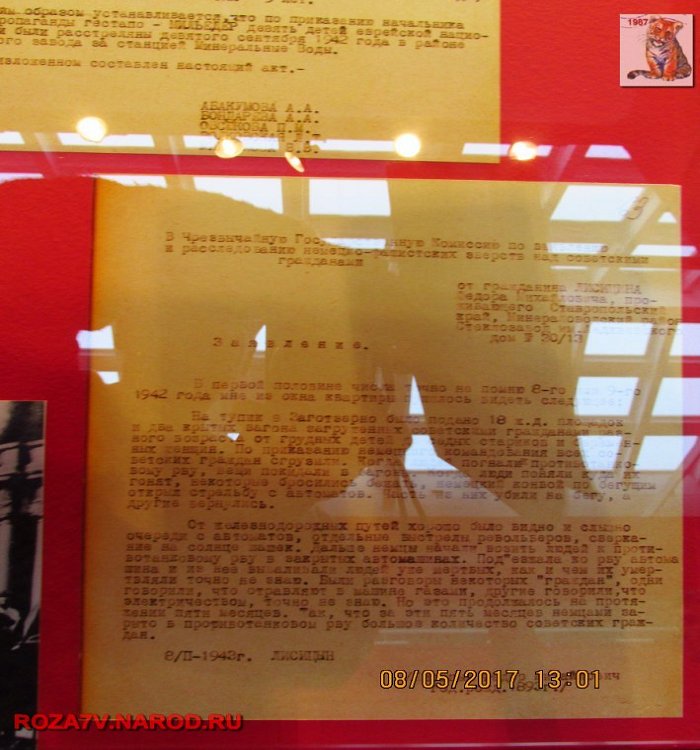 1987
мы образом устанавливается, что по приказанию начальника
ропаганды гестапо - девять детей еврейской нацио-
и были расстреляны девятого сентября 1942 года в районе
ого завода за станцией Минеральные Воды.
изложенном составлен настоящий акт.-
АБАКУМОВА А.А.
БОНДАРЕВА А.А.
В Чрезвычайную Гос Комиссию по
и расследованию немецко-фашистских зверств над советскими
гражданами
от гражданина ЛИСИЦЫНА
Федора Михайловича, про-
живающего Ставропольский
край, Минераловодский район
Стеклозавод им.
дом № 20/13
Заявление.
В первой половине числа точно не помню 8-го 9-го
1942 года мне из окна квартиры пришлось видеть следующее:
На тупик в Заготзерно было подано 18 ж.д. площадок
и два крытых вагона загруженных советскими гражданами раз-
ного возраста от грудных детей седых стариков и
ных женщин. По приказанию немецкого командования всех со-
ветских граждан сгрузили. погнали противотанко-
вому рву, а вещи покидали в вагоны. Когда люди поняли куда их
гонят, некоторые бросились бежать, немецкий конвой по бегущим
открыл стрельбу с автоматов. Часть из них убили на бегу, а
другие вернулись.
От железнодорожных путей хорошо было видно и слышно
очереди с автоматов, отдельные выстрелы револьверов, сверка-
ние на солнце шашек. Дальше немцы начали возить людей к проти-
вотанковому рву в закрытых автомашинах. Под'езжала ко рву автома
шина и из неё вываливали людей мертвых, как и чем их умер-
твляли точно не знаю. Были разговоры некоторых "граждан", одни
говорили, что отравляют в машине газами, другие говорили,что
электричеством, точно не знаю. Но это продолжалось на протя-
жении пяти месяцев. Так, что за эти пять месяцев немцами за-
рыто в противотанковом рву большое количество советских граж-
дан.
8/П-1943г. ЛИСИЦЫН
08/05/2017 13:01
ROZA7V.NAROD.RU